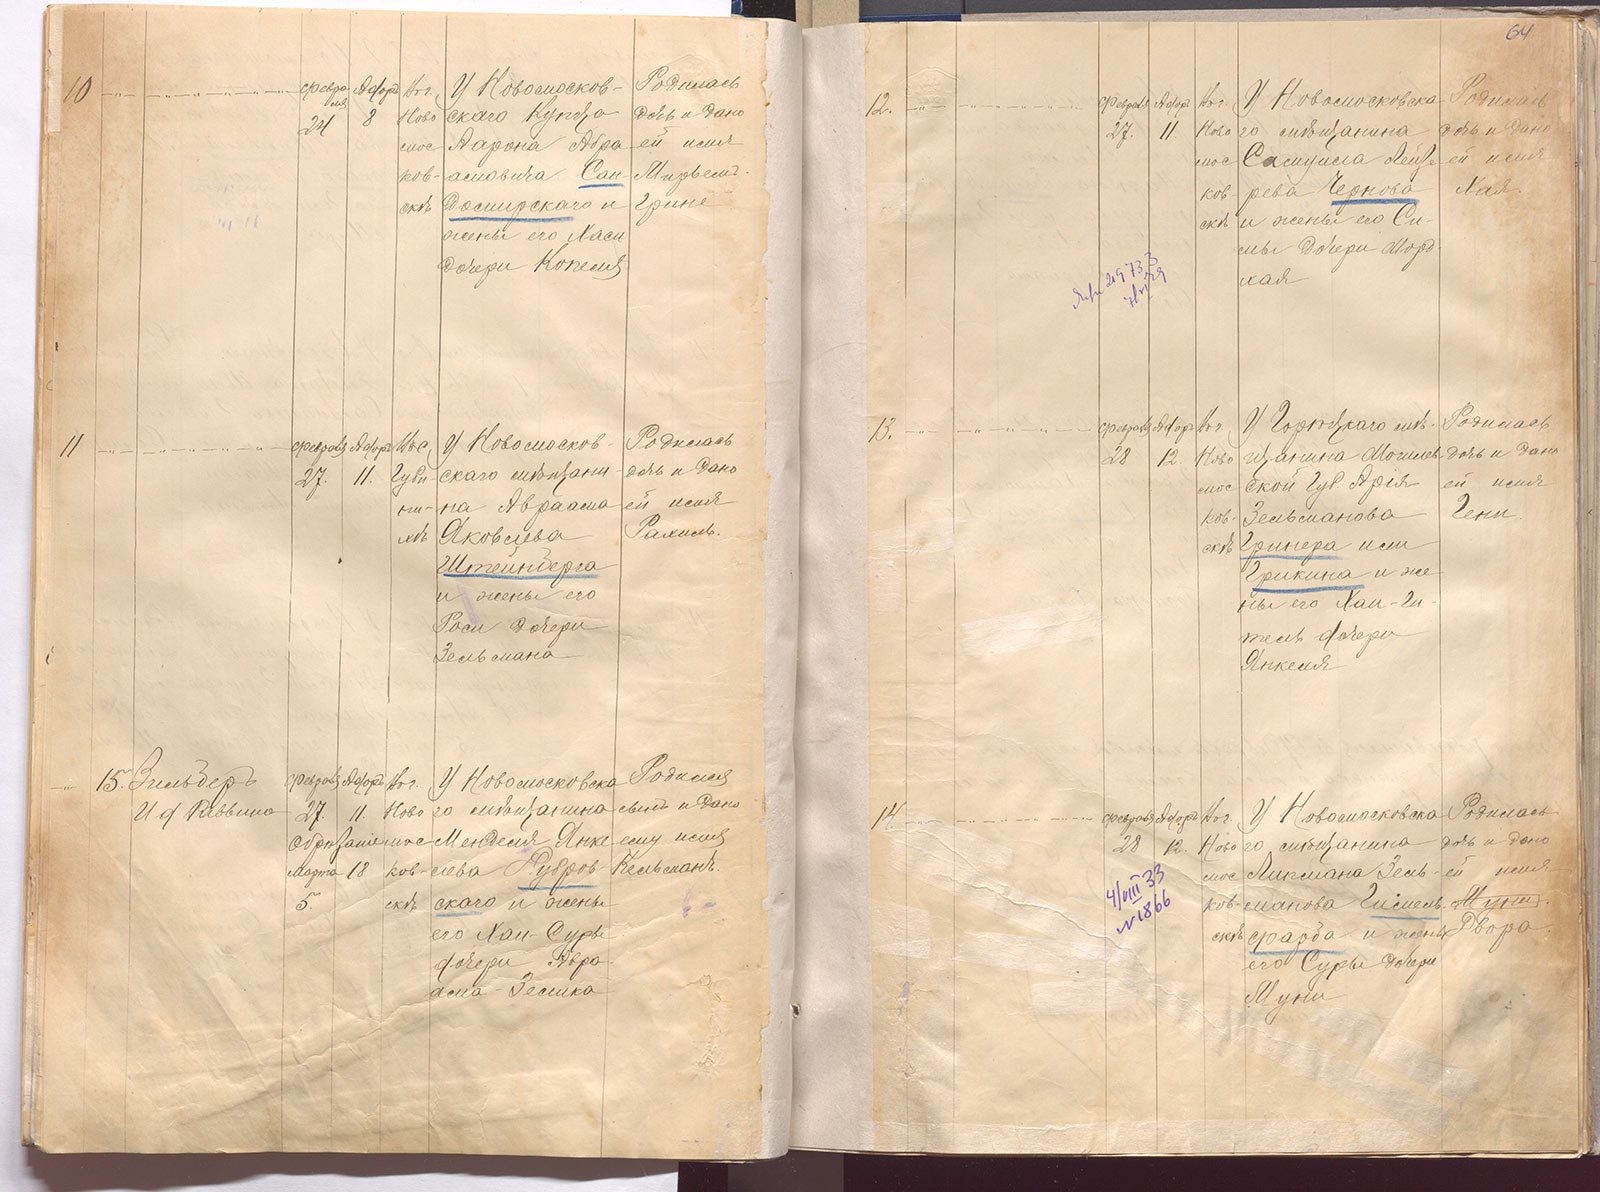 10
Февра
ля
24
Адаръ
8
Ново
мос
ков-
скѣ
У Новомосков-
скаго Купца
Аарона Абра
амовича Сан-
домирскаго и
жены его Хаси
дочери Копеля
Родилась
дочь и дано
ей имя
11
Февраля
27.
Адаръ
11.
Губи-
ни-
хѣ
У Новомосков-
скаго мѣщани-
на Авраама
Яковлева
Штейнберга
и жены его
Роси дочери
Зельмана
Родилась
дочь и дано
ей имя
Рахиль.
15. Зильберъ
И д Раввина
Февраля
27.
Обрѣзаніе
Марта
5.
Адаръ
11.
18
Ново
мос-
ков-
скѣ
У Новомосковска
го мѣщанина
Менделя Янке
лева Дубров-
скаго и жены
его Хаи-Суры
дочери Авра
ама-Зелика
Родился
сынъ и дано
ему имя
Кельманъ.
64
12.
Февраля
27.
Адаръ
11
Ново
мос
ков-
скѣ
У Новомосковска
го мѣщанина
Самуила Лейзе
рева Чернова
и жены его Си-
мы дочери Морд-
хая
Родилась
дочь и дано
ей имя
Хая.
13.
Февраля
28
Адаръ
12.
Ново
мос
ков-
скѣ
У Горецкаго мѣ-
щанина Могилев
ской Губ Арія
Зельманова
Гринера или
Грикина и же
ны его Хаи-Ги-
тель дочери
Янкеля
Родилась
дочь и дано
ей имя
Гени.
14.
Февраля
28
Адаръ
12.
4/VIII 33
№1866
Ново
мос
ков-
скѣ
У Новомосковска
го мѣщанина
Липмана Зель-
манова Гисмель
фарба и жены
его Суры дочери
Муни
Родилась
дочь и дано
ей имя
Муни
Двора.